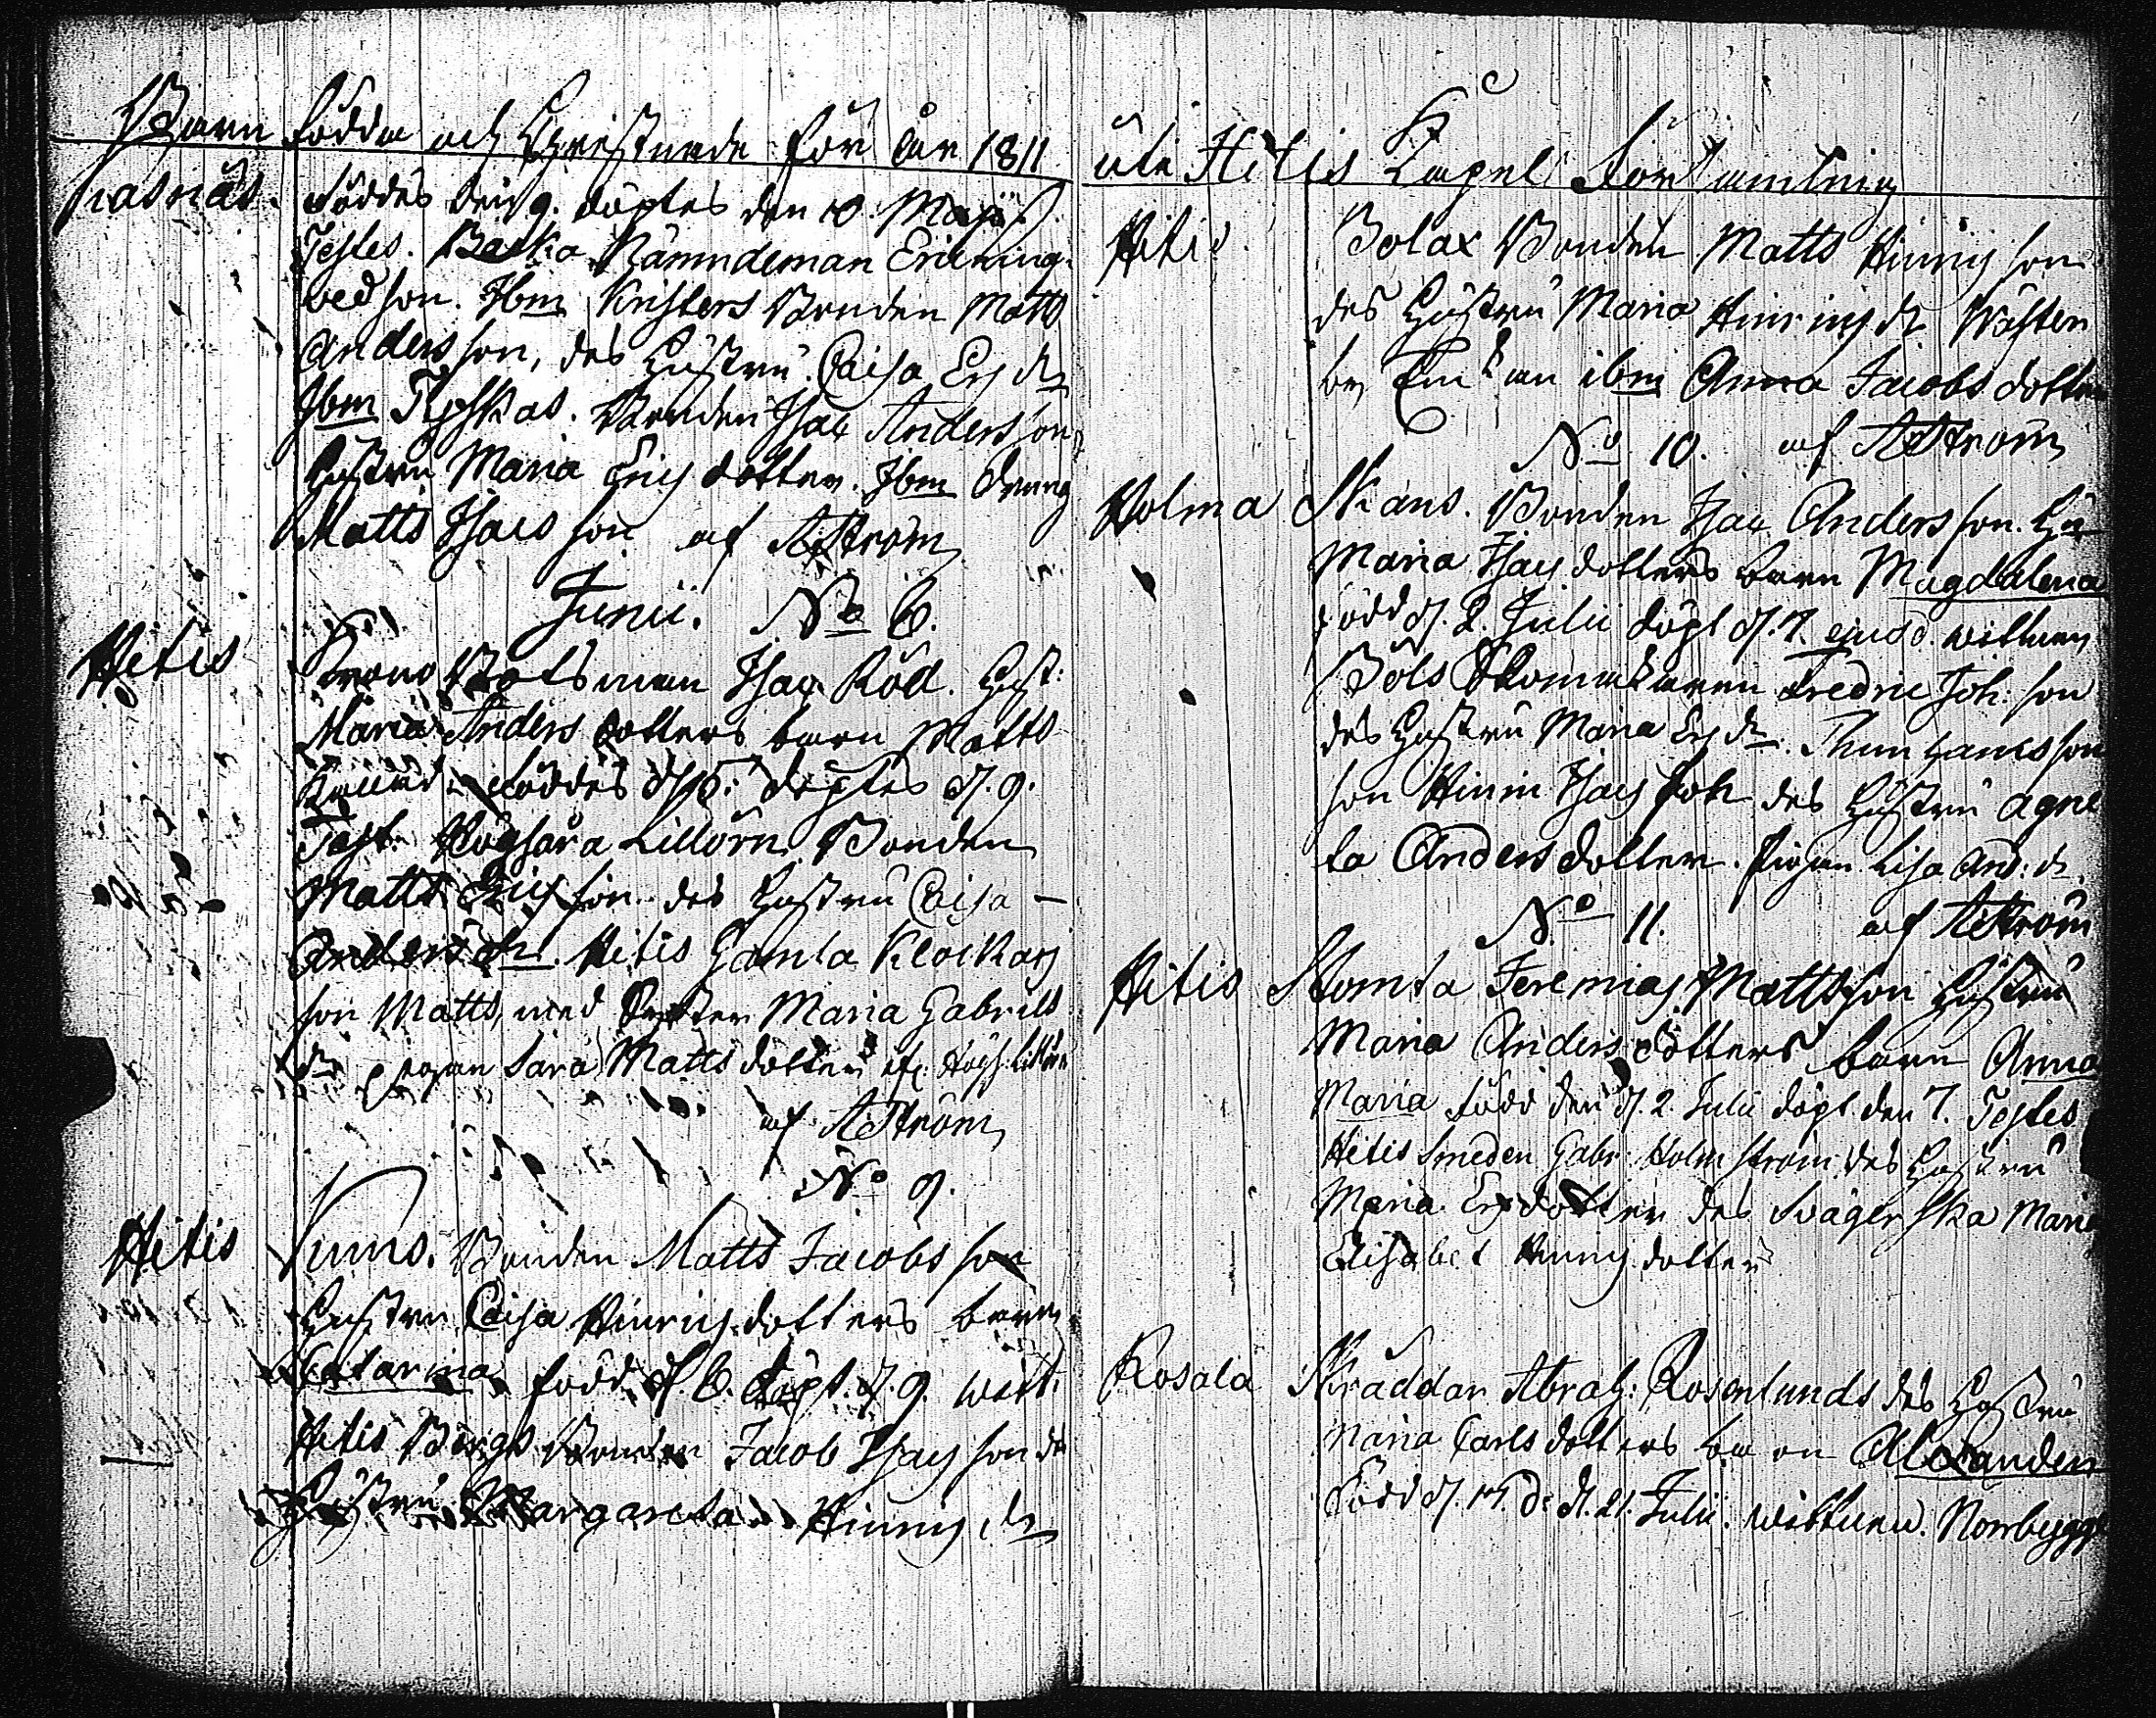 Barn födde och Christnade för år 1811
Kasnäs. föddes den 9. döptes den 10 Maji
Testes. Backa Nämndeman Eric Hing-
vedson. Ibm Kristers Bonden Matts
Andersson, des Hustru Caisa Ersdr
Ibm Tyskas. Bonden Isac Andersson
Hustru Maria Ericsdotter. Ibm Dreng
Matts Isacsson af Åström
Junii. No 8.
Hitis Krono Båtsman Isac Röd. Hust:
Maria Anders dotters barn Matts
föddes d. döptes d. 9.
Test. Högsåra Lillörn Bonden
Matts Ericsson des Hustru Caisa
Anders dr. Hitis Gamla Klockars
son Matts, med Syster Maria Gabriels
dr pigan Sara Matts dotter
af Åström
No 9.
Hitis Nums. Bonden Matts Jacobs son
Hustru Caisa Hinrics dotters barn
Catarina född d. 6. döpt. d. 9. witt.
Hitis Bergs Bonden Jacob Isacsson ds
Hustru Margareta Hinrics dr
uti Hitis Capell Församling
Hitis Bolax Bonden Matts Hinrics son
des Hustru Maria Hinrics dr Wäster
by Enkan ibm Anna Jacobs dotter
No 10. af Åström
Holma Skans. Bonden Isac Andersson. Hu
Maria Isacs dotters barn Magdalena
född d. 2. Julii döpt d. 7. ejusd. wittnen
Böls Skomakaren Fredric Joh: son
des Hustru Maria Ers dr.
son Hinric Isacs des Hustru Agne
ta Anders dotter. Pigan Lisa And: dr.
No 11. af Åström
Hitis Stomta Jeremias Mattsson Hustru
Maria Anders dotters barn Anna
Maria född den d. 2. Julii döpt den 7. Testes
Hitis Smeden Gabr: Holmström des Hustru
Maria Ersdotter des Svägerska Maria
Elisabet Hinrics dotter
Rosala Skräddar Abrah: Rosenlunds des Hustru
Maria Carls dotters barn Alexander
född d. 15. d: d. 21. Julii. wittnen. Norrbygg